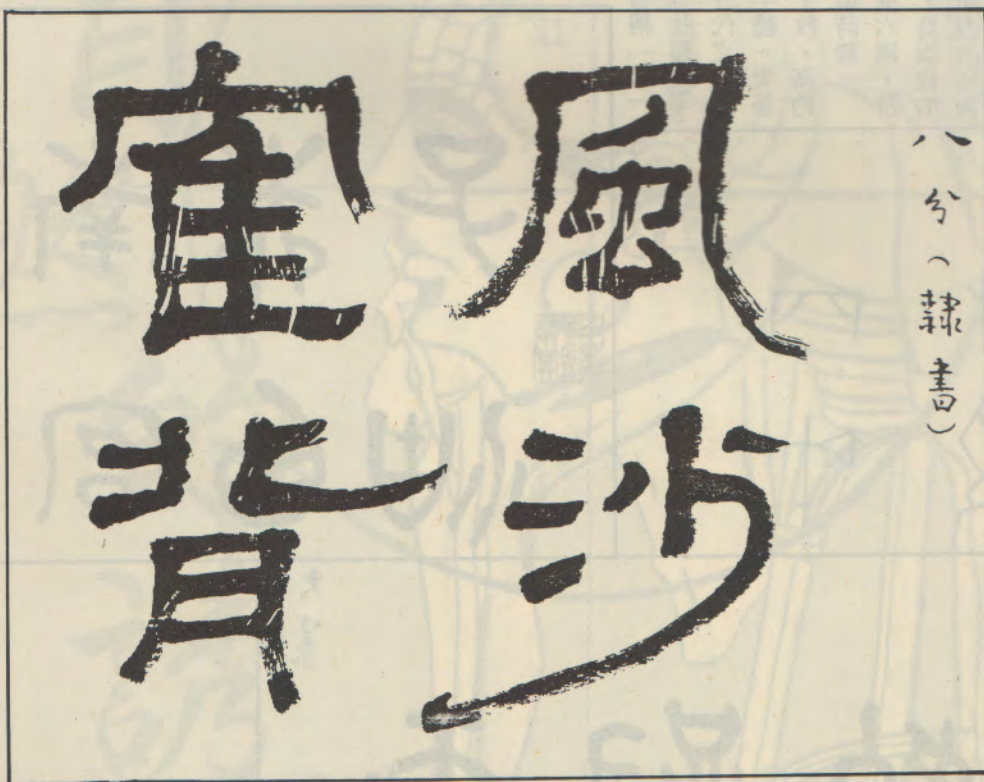 八分（隷書）
風沙
寉背